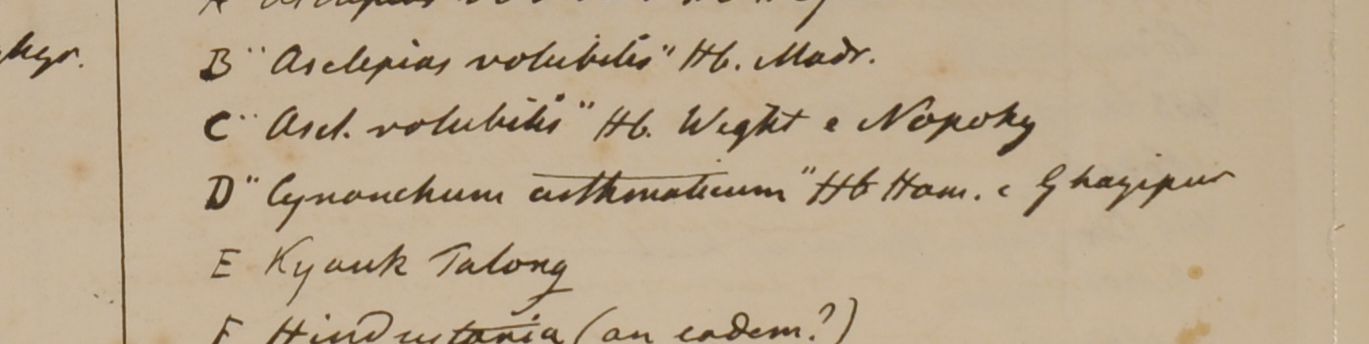 A
B "Asclepias volubilis" Hb. Madr.
C "Ascl. volubilis" Hb. Wight e Nopoky
D "Cynanchum asthmaticum" Hb Ham. e Ghazipur
E Kyouk Talong
F Hindustania (an eadem?)